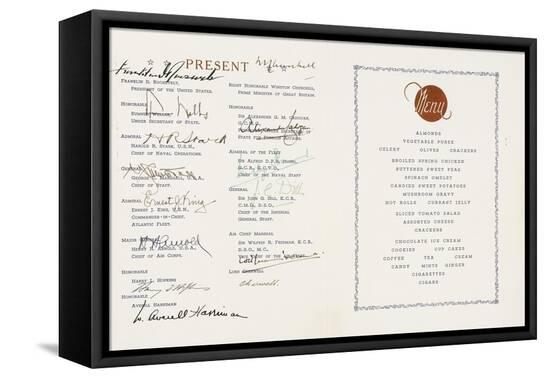 PRESENT
Franklin D. Roosevelt
W S Churchill
FRANKLIN D. ROOSEVELT,
PRESIDENT OF THE UNITED STATES.
HONORABLE
SUMNER WELLES,
UNDER SECRETARY OF STATE.
ADMIRAL
HAROLD R. STARK, U.S.N.,
CHIEF OF NAVAL OPERATIONS.
GENERAL
GEORGE C. MARSHALL, U.S.A.
CHIEF OF STAFF.
ADMIRAL
Ernest J. King
ERNEST J. KING, U.S.N.,
COMMANDER-IN-CHIEF,
ATLANTIC FLEET.
MAJOR
H H Arnold
HENRY H. ARNOLD, U.S.A.,
CHIEF OF AIR CORPS.
HONORABLE
HARRY J. HOPKINS
HONORABLE
AVERELL HARRIMAN
W. Averell Harriman
RIGHT HONORABLE WINSTON CHURCHILL,
PRIME MINISTER OF GREAT BRITAIN.
HONORABLE
SIR ALEXANDER G. M. CADOGAN,
STATE FOR FOREIGN AFFAIRS.
ADMIRAL OF THE FLEET
SIR ALFRED D.P.R. POUND,
G.C.B., G.C.V.O.,
CHIEF OF THE NAVAL STAFF
GENERAL
SIR JOHN G. DILL, K.C.B.,
C.M.G., D.S.O.,
CHIEF OF THE IMPERIAL
GENERAL STAFF.
AIR CHIEF MARSHAL
SIR WILFRID R. FREEMAN, K.C.B.,
D.S.O., M.C.,
LORD CHERWELL
Cherwell.
Menu
ALMONDS
VEGETABLE PUREE
CELERY OLIVES CRACKERS
BROILED SPRING CHICKEN
BUTTERED SWEET PEAS
SPINACH OMELET
CANDIED SWEET POTATOES
MUSHROOM GRAVY
HOT ROLLS CURRANT JELLY
SLICED TOMATO SALAD
ASSORTED CHEESE
CRACKERS
CHOCOLATE ICE CREAM
COOKIES CUP CAKES
COFFEE TEA CREAM
CANDY MINTS GINGER
CIGARETTES
CIGARS